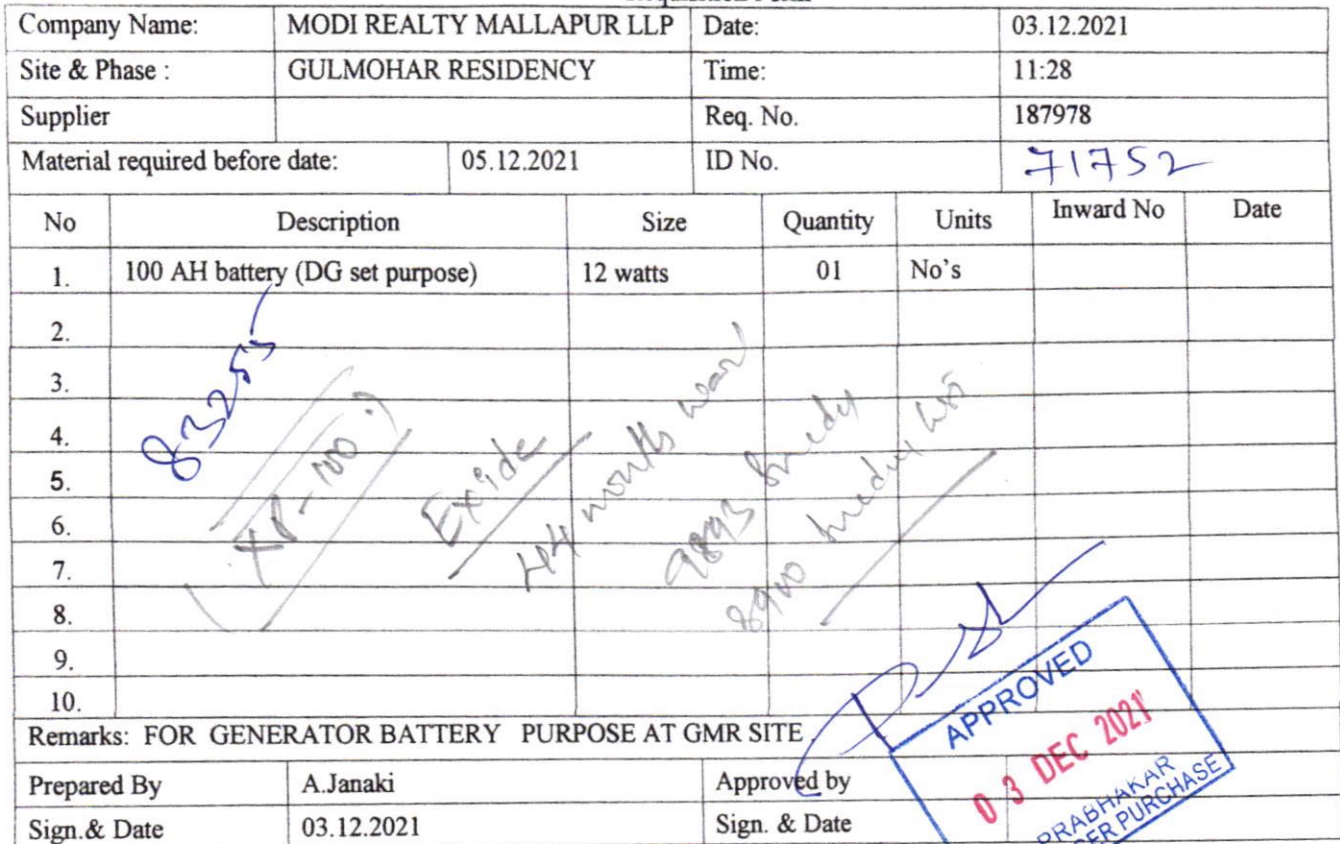 Company Name: MODI REALTY MALLAPUR LLP Date: 03.12.2021
Site & Phase : GULMOHAR RESIDENCY Time: 11:28
Supplier Req. No. 187978
Material required before date: 05.12.2021 ID No. 71752
No Description Size Quantity Units Inward No Date
1. 100 AH battery (DG set purpose) 12 watts 01 No's
2.
3.
4.
5.
6.
7.
8.
9.
10.
83255
XP-100
Exide
44 months
9893
8900
Remarks: FOR GENERATOR BATTERY PURPOSE AT GMR SITE
Prepared By A.Janaki Approved by
Sign.& Date 03.12.2021 Sign. & Date
APPROVED
03 DEC 2021
PRABHAKAR
PURCHASE